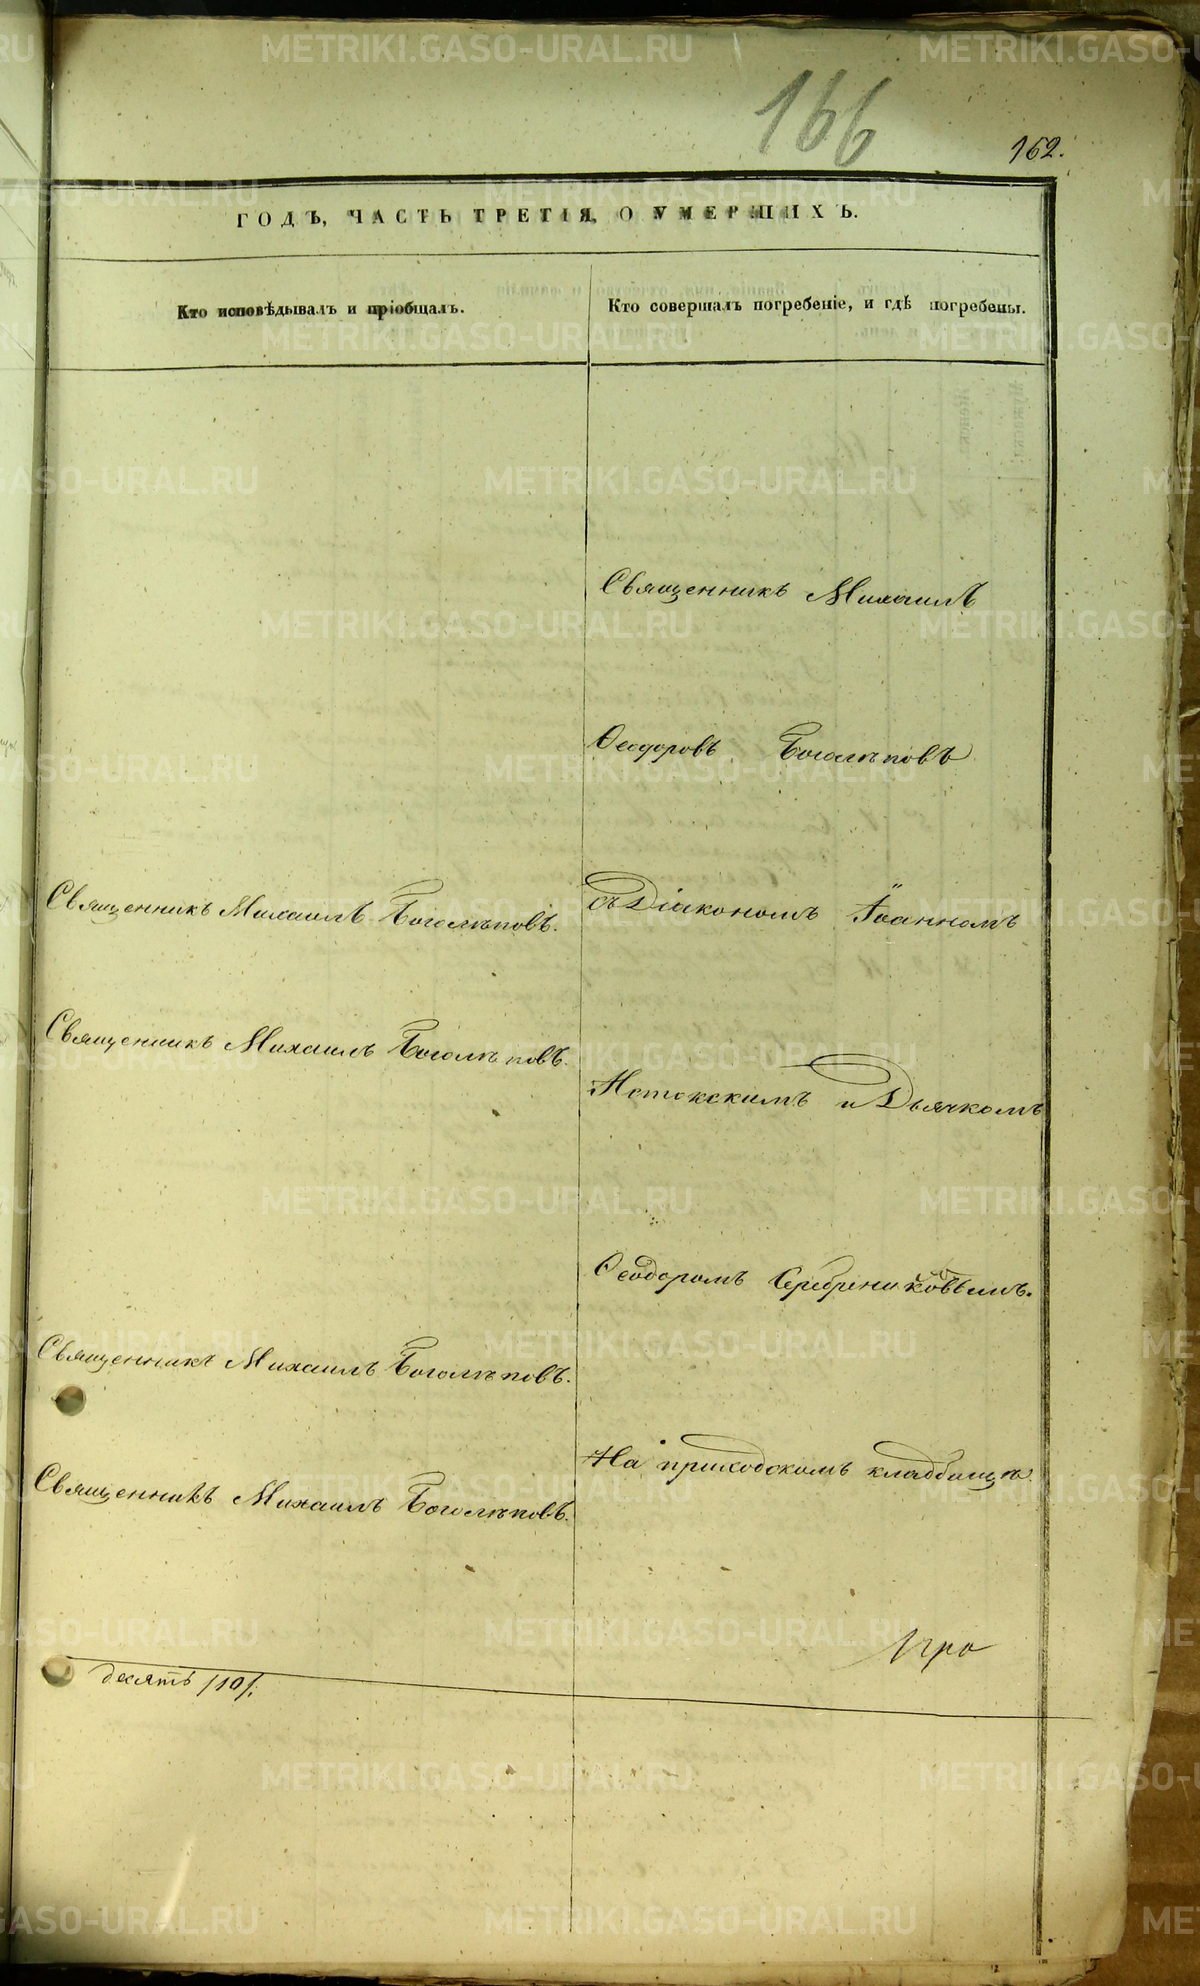 166
162.
ГОДЪ, ЧАСТЬ ТРЕТІЯ, О УМЕРШИХЪ.
Кто исповѣдывалъ и пріобщалъ.
Кто совершалъ погребеніе, и гдѣ погребены.
Священникъ Михаилъ Боголѣповъ.
Священникъ Михаилъ Боголѣповъ.
Священникъ Михаилъ Боголѣповъ.
Священникъ Михаилъ Боголѣповъ.
десять /10/.
Священникъ Михаилъ
Ѳеодоровъ Боголѣповъ
съ Діакономъ Іоанномъ
и Дьячкомъ
Ѳеодоромъ Серебрениковымъ.
На приходскомъ кладбищѣ.
Про
METRIKI.GASO-URAL.RU